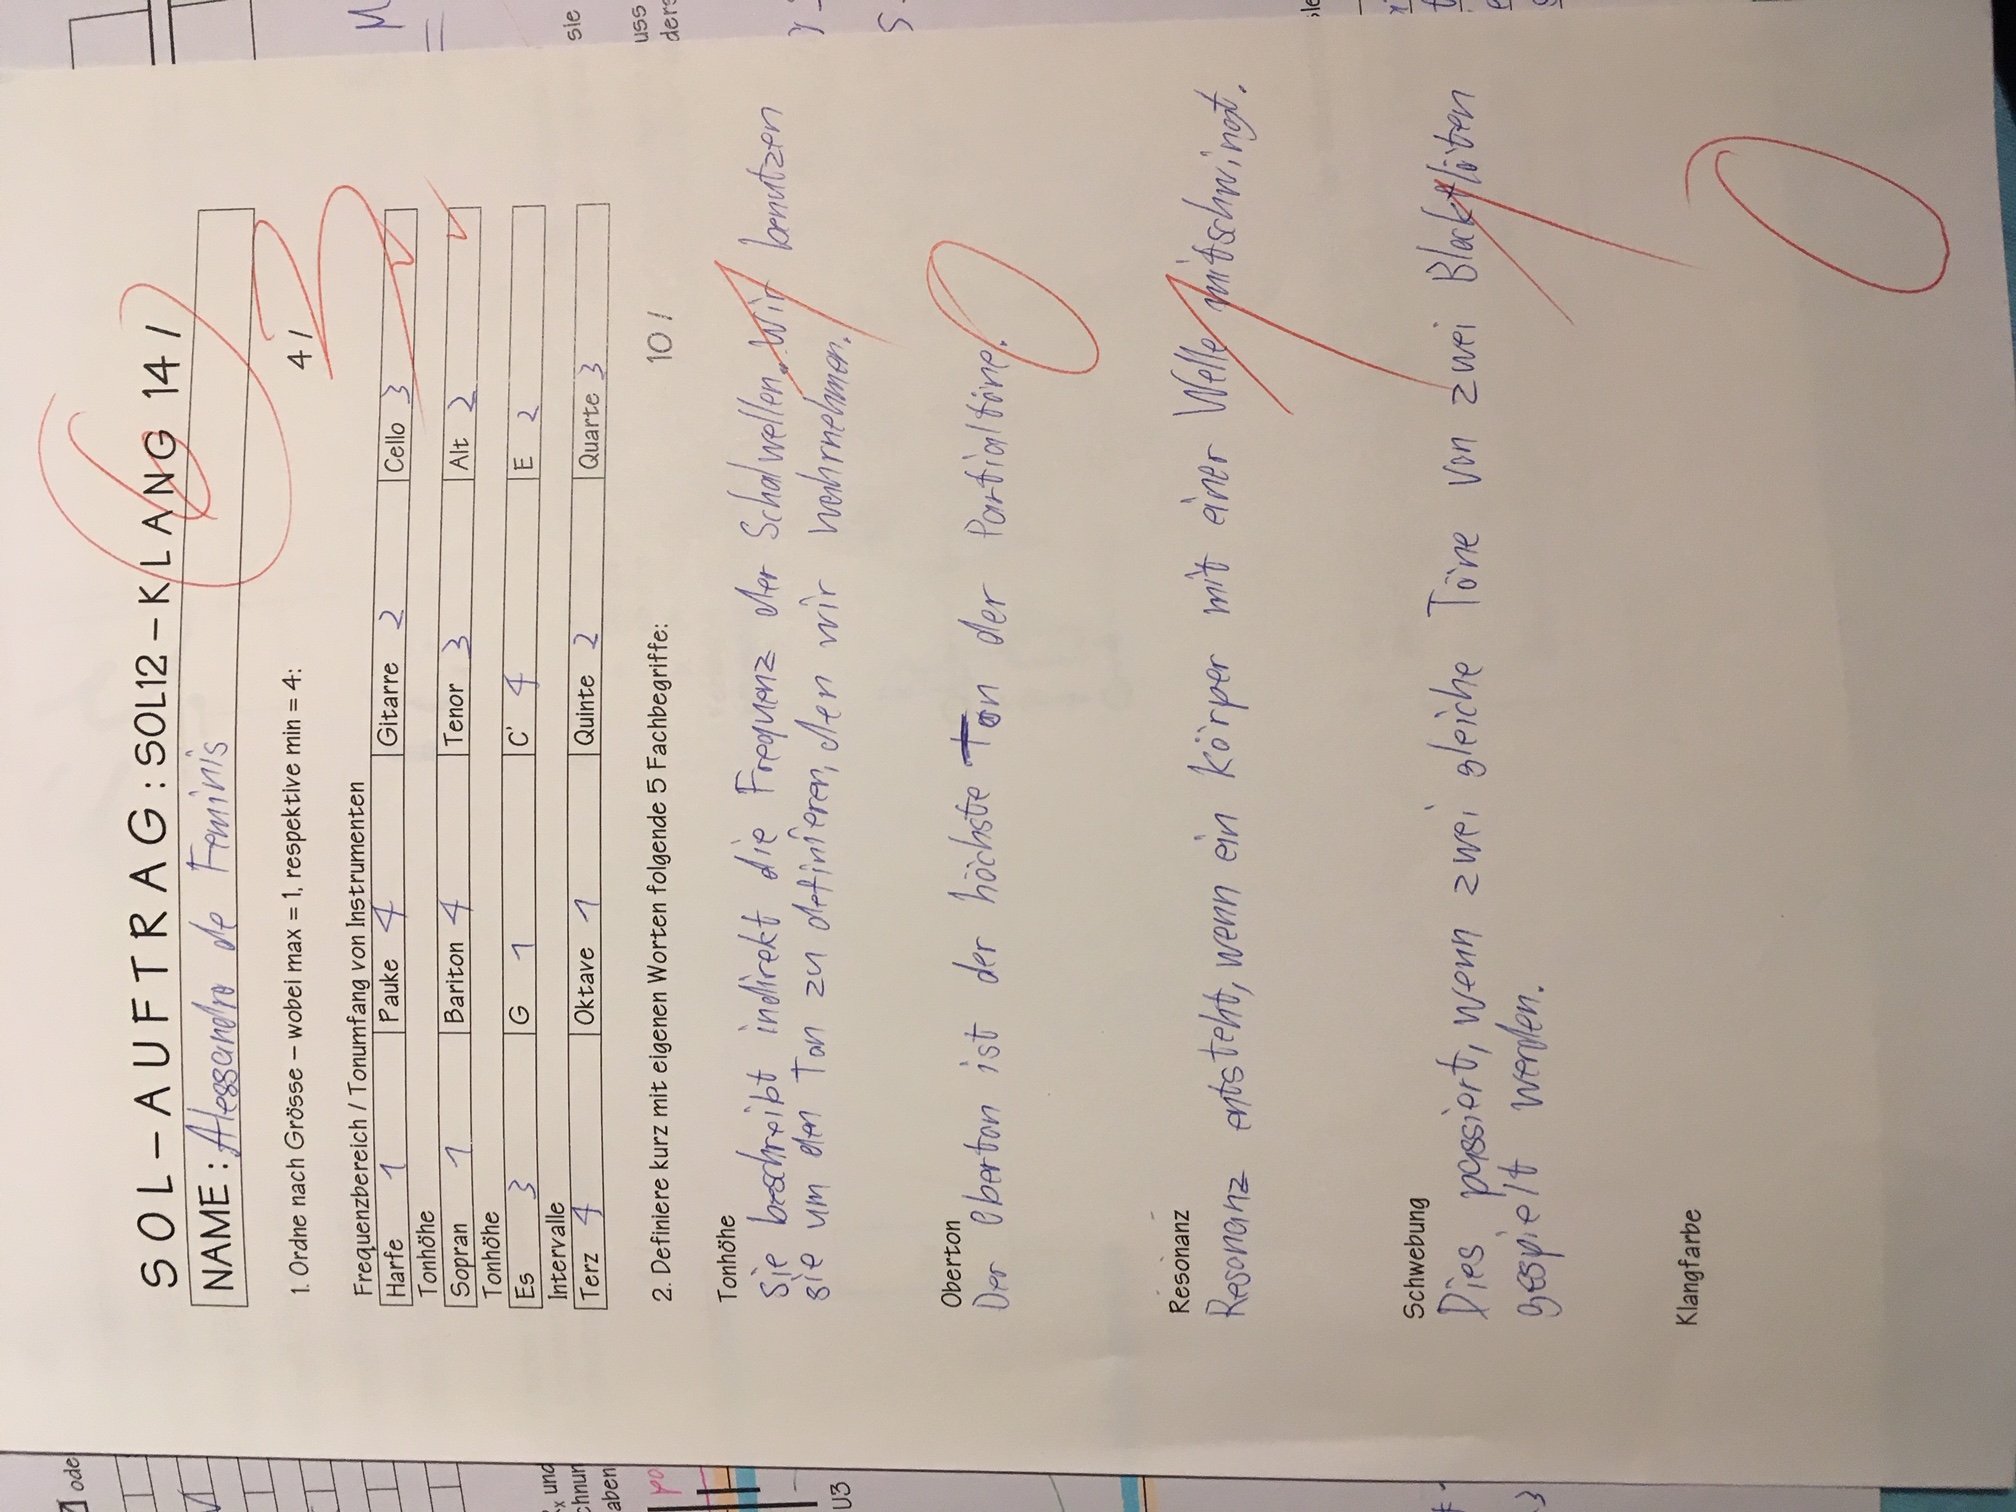 SOL-AUFTRAG: SOL12-KLANG 14 /
6
NAME: Alessandro de Feminis
1. Ordne nach Grösse – wobei max = 1, respektive min = 4: 4 / 3
Frequenzbereich / Tonumfang von Instrumenten
Harfe 1 Pauke 4 Gitarre 2 Cello 3
Tonhöhe
Sopran 1 Bariton 4 Tenor 3 Alt 2
Tonhöhe
Es 3 G 1 C' 4 E 2
Intervalle
Terz 4 Oktave 1 Quinte 2 Quarte 3
2. Definiere kurz mit eigenen Worten folgende 5 Fachbegriffe: 10 /
Tonhöhe
Sie beschreibt indirekt die Frequenz der Schalwellen. Wir benutzen
sie um den Ton zu definieren, den wir wahrnehmen.
1
Oberton
Der Oberton ist der höchste Ton der Partialtöne.
0
Resonanz
Resonanz entsteht, wenn ein Körper mit einer Welle mitschwingt.
1
Schwebung
Dies passiert, wenn zwei gleiche Töne von zwei Blockflöten
gespielt werden.
1
Klangfarbe
0
ode
und
chnun
aben
U3
sie
uss
ders